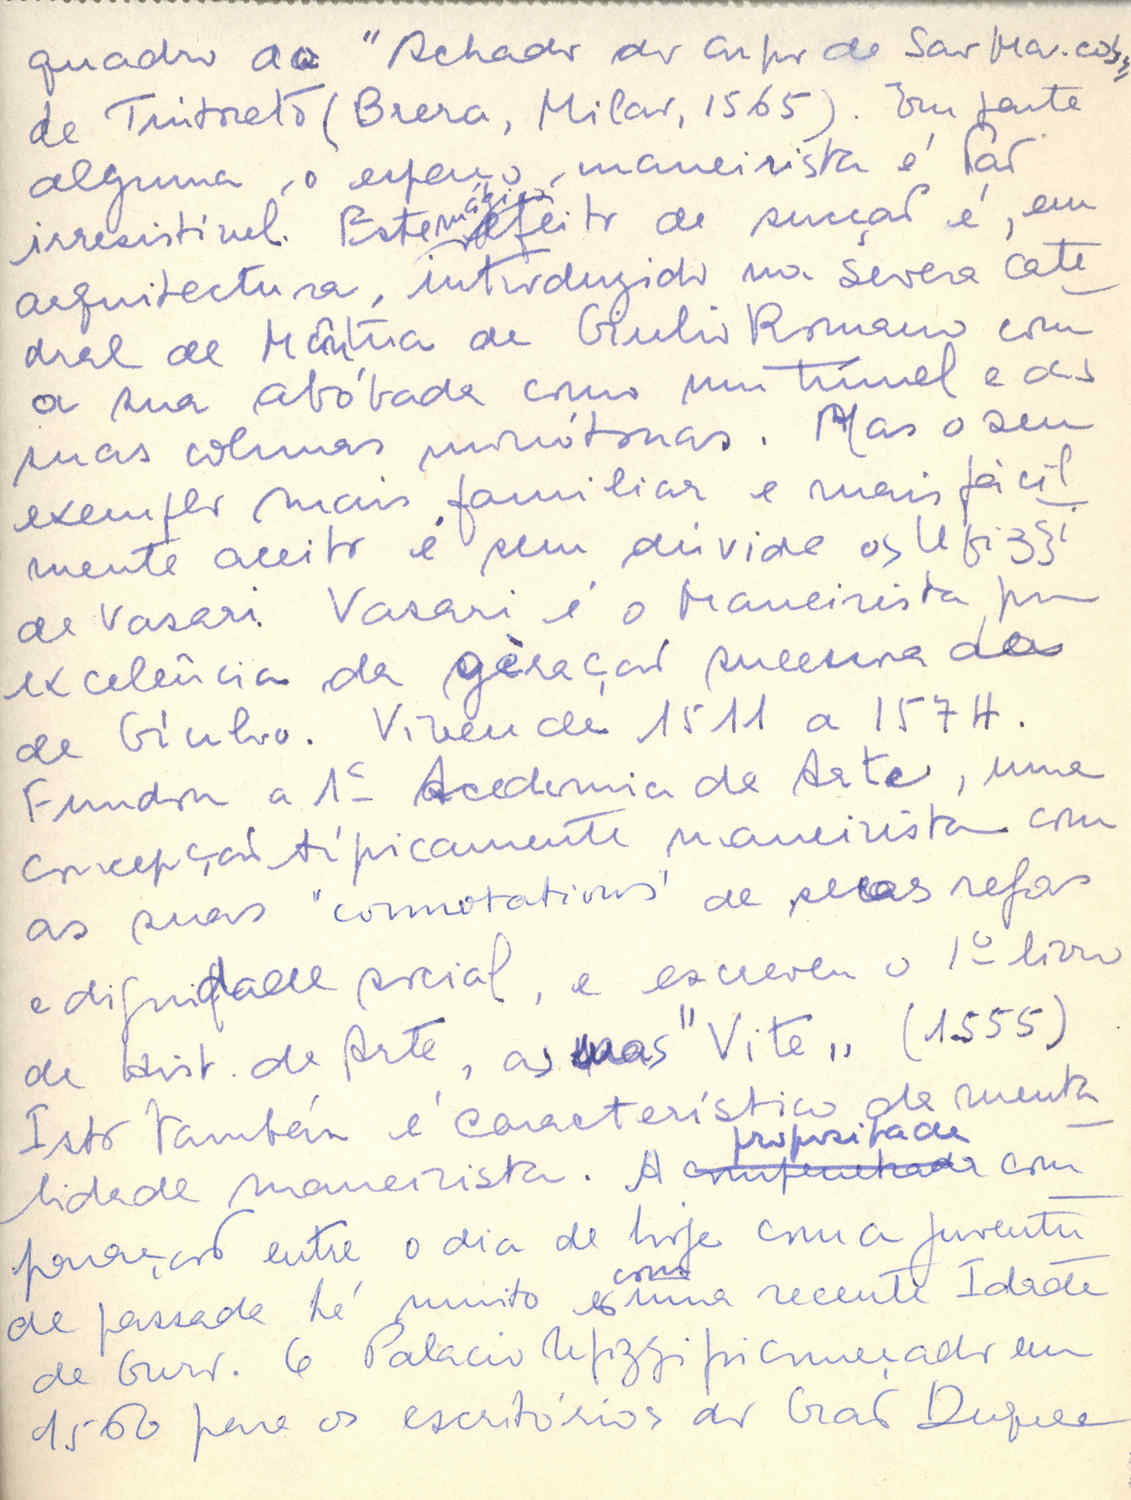 quadro do "Achado do corpo de São Marcos"
de Tintoreto (Brera, Milão, 1565). Em parte
alguma, o espaço maneirista é tão
irresistível. Este mágico efeito de sucção é, em
arquitectura, introduzido na severa cate
dral de Mântua de Giulio Romano com
a sua abóbada como um túnel e as
suas colunas monótonas. Mas o seu
exemplo mais familiar e mais fácil
mente aceito é sem dúvida os Ufizzi
de Vasari. Vasari é o Maneirista por
excelência da geração sucessora da
de Giulio. Viveu de 1511 a 1574.
Fundou a 1ª Academia de Arte, uma
concepção típicamente maneirista com
as suas "connotations" de regras
e dignidade social, e escreveu o 1º livro
de Hist. de Arte, as suas "Vite" (1555)
Isto também é característico da menta
lidade maneirista. A propositada com
paração entre o dia de hoje com a juventu
de passada há muito como uma recente Idade
de Ouro. O Palacio Ufizzi foi começado em
1560 para os escritórios do Grão Duque